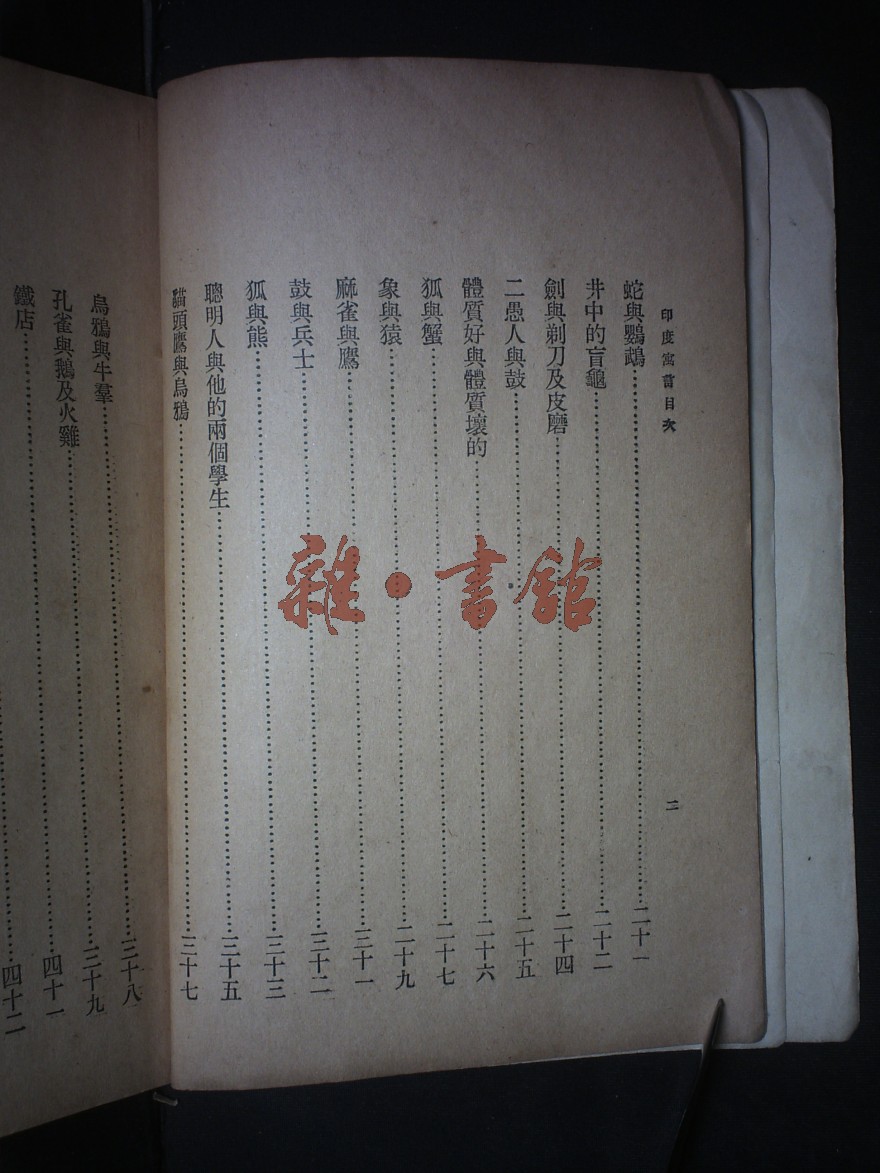 印度寓言目次
二
蛇與鸚鵡……二十一
井中的盲龜……二十二
劍與剃刀及皮磨……二十四
二愚人與鼓……二十五
體質好與體質壞的……二十六
狐與蟹……二十七
象與猿……二十九
麻雀與鷹……三十一
鼓與兵士……三十二
狐與熊……三十三
聰明人與他的兩個學生……三十五
貓頭鷹與烏鴉……三十七
三十八
烏鴉與牛羣……三十九
孔雀與鵝及火雞……四十一
鐵店……四十二
雜·書館